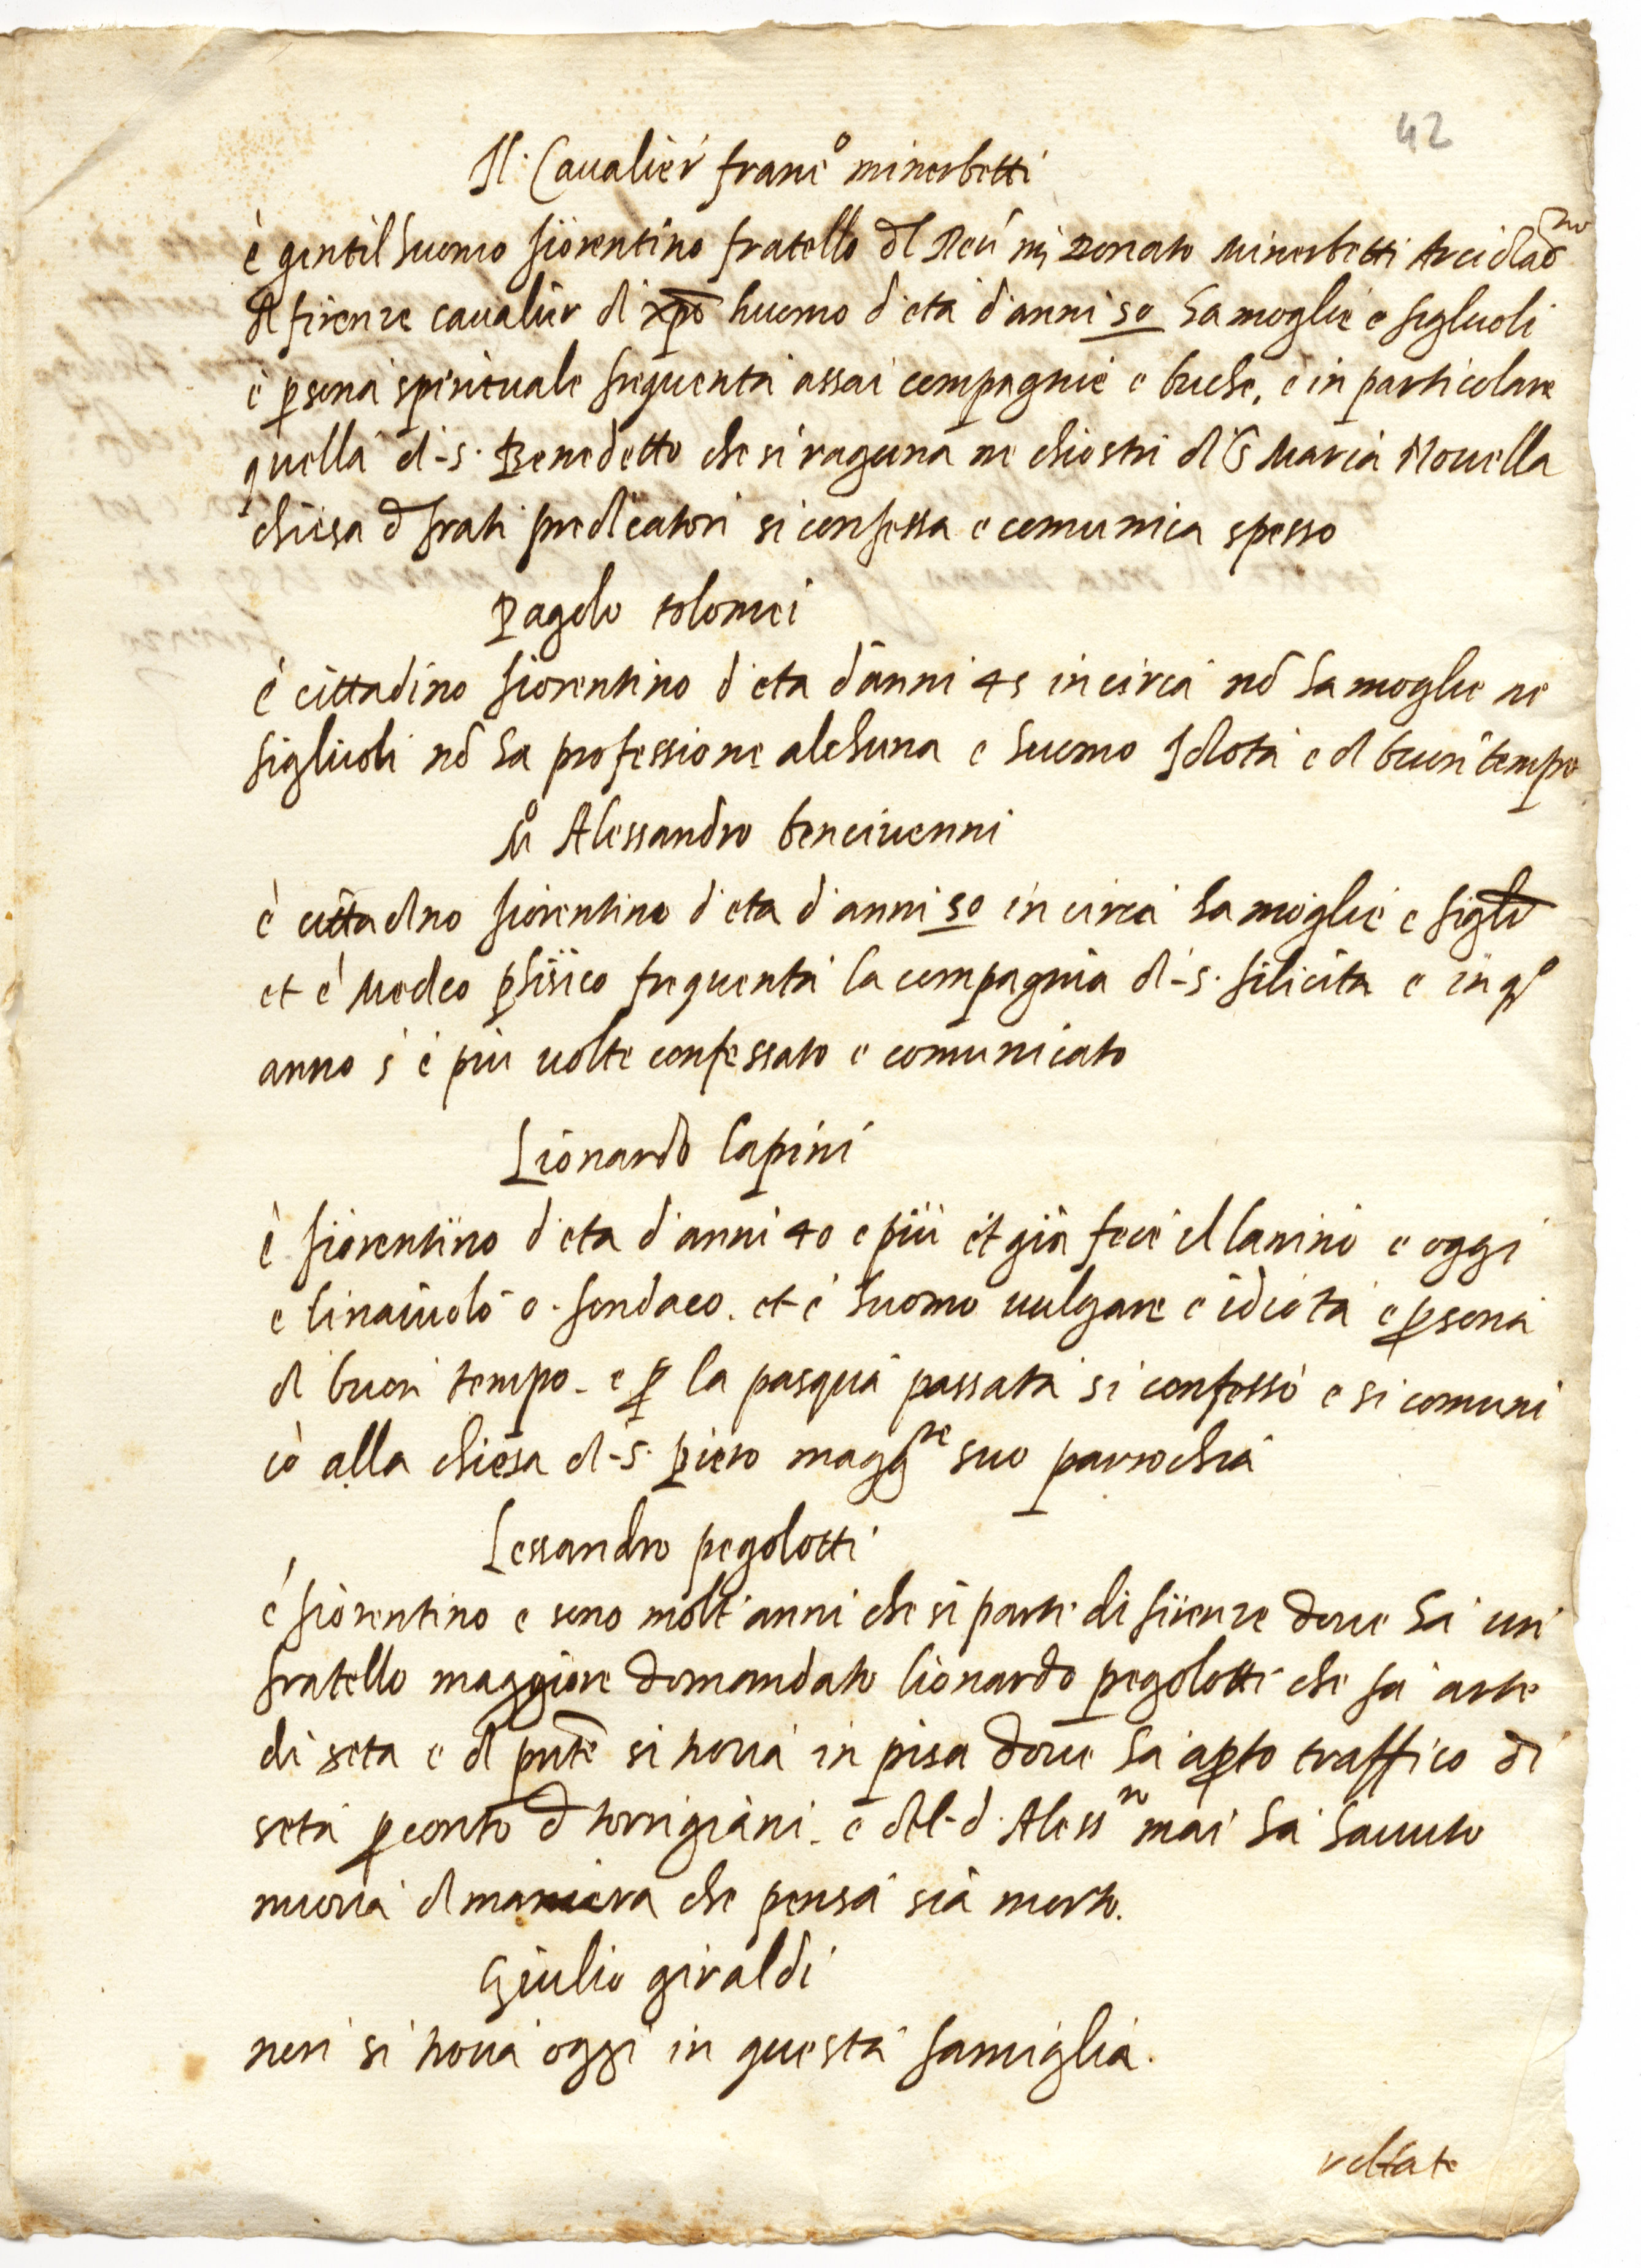 42
Il Cavalier franc° minerbetti
è gentilhuomo fiorentino fratello dl Reu m Donato Minerbetti Arcidiac°no
di firenze caualier di xpo huomo d'eta d'anni 50 ha moglie e figliuoli
è psona spirituale frequenta assai compagnie e buche, e in particolare
quella di -s· Benedetto che si raguna ne chiostri di S Maria Nouella
chiesa d frati predicatori si confessa e comunica spesso
Pagolo tolomei
è cittadino fiorentino d'eta d'anni 45 in circa nō ha moglie ne
figliuoli nō ha professione alchuna e huomo Idiota e di buon tempo
M° Alessandro bencivenni
è cittadino fiorentino d'eta d'anni 50 in circa ha moglie e figli
et è Medico phisico frequenta la compagnia di -s· filicita e in q°
anno s'è più uolte confessato e comunicato
Lionardo lapini
è fiorentino d'eta d'anni 40 e più et già fece il lanino e oggi
e linaiuolo o· fondaco. et è huomo uulgare e idiota e psona
di buon tempo - e p la pasqua passata si confessò e si comuni
cò alla chiesa di -s· piero magg're suo parrochia
Lessandro pegolotti
è fiorentino e sono molti anni che si parti di firenze doue ha un
fratello maggiore domandato lionardo pegolotti che fa arte
di seta e di pnte si troua in pisa doue ha apto traffico di
seta p conto d torrigiani - e del -d· Aless'ro mai ha hauuto
nuoua di maniera che pensa sia morto.
Giulio giraldi
non si troua oggi in questa famiglia.
voltate